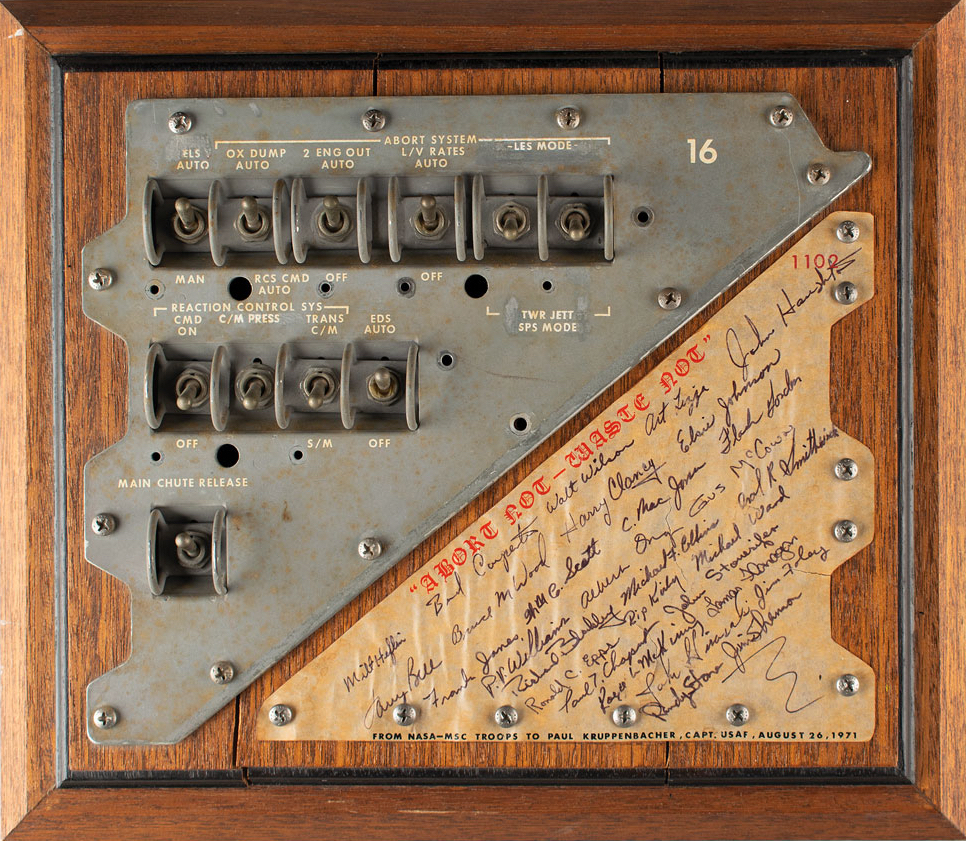 ABORT SYSTEM
ELS AUTO OX DUMP AUTO 2 ENG OUT AUTO L/V RATES AUTO -LES MODE- 16
MAN RCS CMD AUTO OFF OFF
REACTION CONTROL SYS TWR JETT
CMD ON C/M PRESS TRANS C/M EDS AUTO SPS MODE
OFF S/M OFF
MAIN CHUTE RELEASE
1102
"ABORT NOT — WASTE NOT"
John
Walt Wilson Art
Elvie Johnson
Bud Carpenter Harry Clancy Flash Gordon
Bruce M Wood C. Mac Jones
Will C. Scott Gus McCown
Milt Heflin James Ahern Carl R. Smitheine
Larry Bell Frank P. R. Williams Michael F. Elkins Michael Ward
Richard Rip Kirby
Ronald C. Epps John
Paul T. Chapman James
Roger L. McKin Jim
Jack
Randy Stone Jim Shannon
FROM NASA—MSC TROOPS TO PAUL KRUPPENBACHER, CAPT. USAF, AUGUST 26, 1971